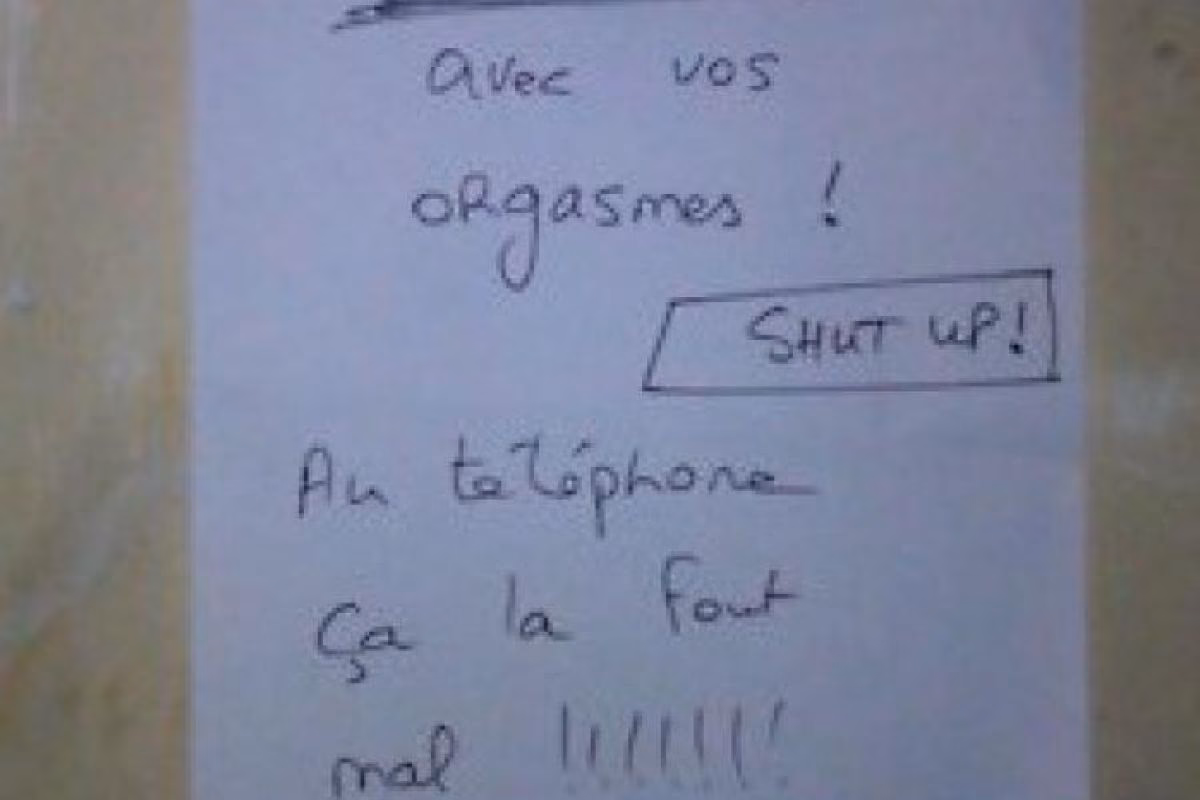 avec vos
orgasmes !
SHUT UP!
Au téléphone
ça la fout
mal !!!!!!!